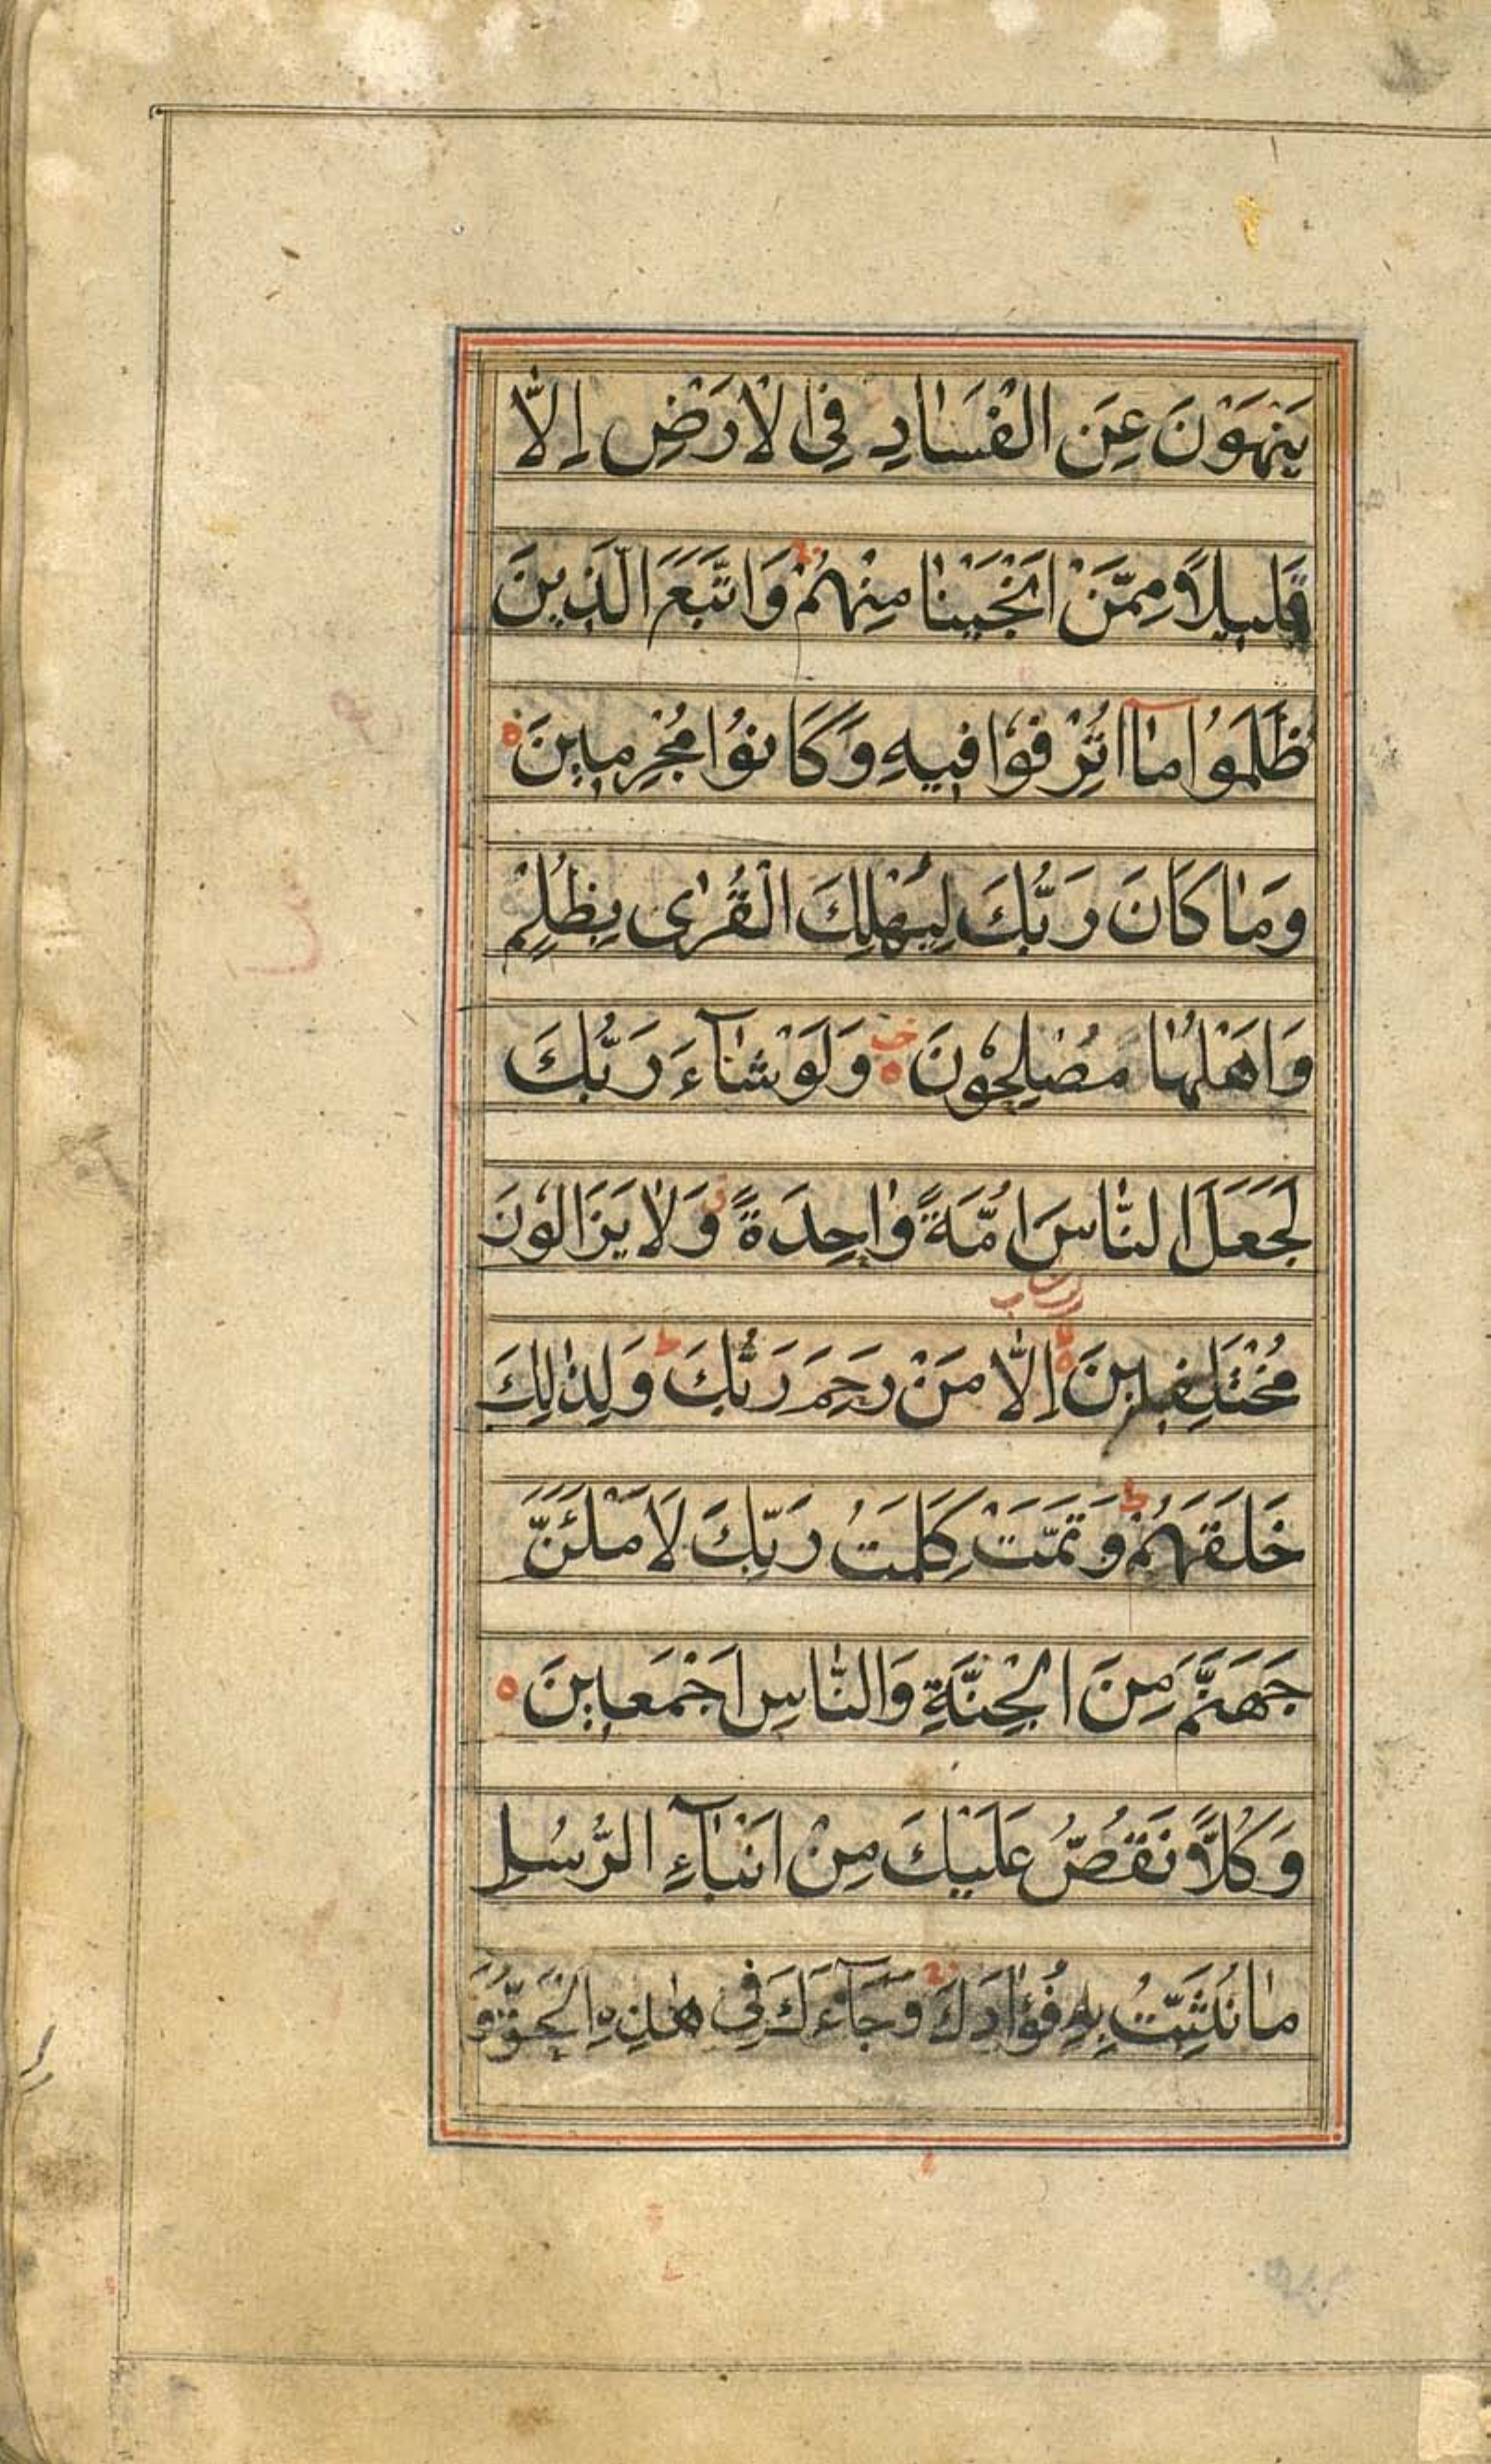 يَنْهَوْنَ عَنِ الْفَسَادِ فِي الْاَرْضِ اِلَّا
قَلِيلًا مِمَّنْ اَنْجَيْنَا مِنْهُمْ وَاتَّبَعَ الَّذِينَ
ظَلَمُوا مَآ اُتْرِفُوا فِيهِ وَكَانُوا مُجْرِمِينَ
وَمَا كَانَ رَبُّكَ لِيُهْلِكَ الْقُرٰى بِظُلْمٍ
وَاَهْلُهَا مُصْلِحُونَ وَلَوْ شَآءَ رَبُّكَ
لَجَعَلَ النَّاسَ اُمَّةً وَاحِدَةً وَلَا يَزَالُونَ
مُخْتَلِفِينَ اِلَّا مَنْ رَحِمَ رَبُّكَ وَلِذٰلِكَ
خَلَقَهُمْ وَتَمَّتْ كَلِمَتُ رَبِّكَ لَاَمْلَئَنَّ
جَهَنَّمَ مِنَ الْجِنَّةِ وَالنَّاسِ اَجْمَعِينَ
وَكُلًّا نَقُصُّ عَلَيْكَ مِنْ اَنْبَآءِ الرُّسُلِ
مَا نُثَبِّتُ بِهِ فُؤَادَكَ وَجَآءَكَ فِي هٰذِهِ الْحَقُّ وَ